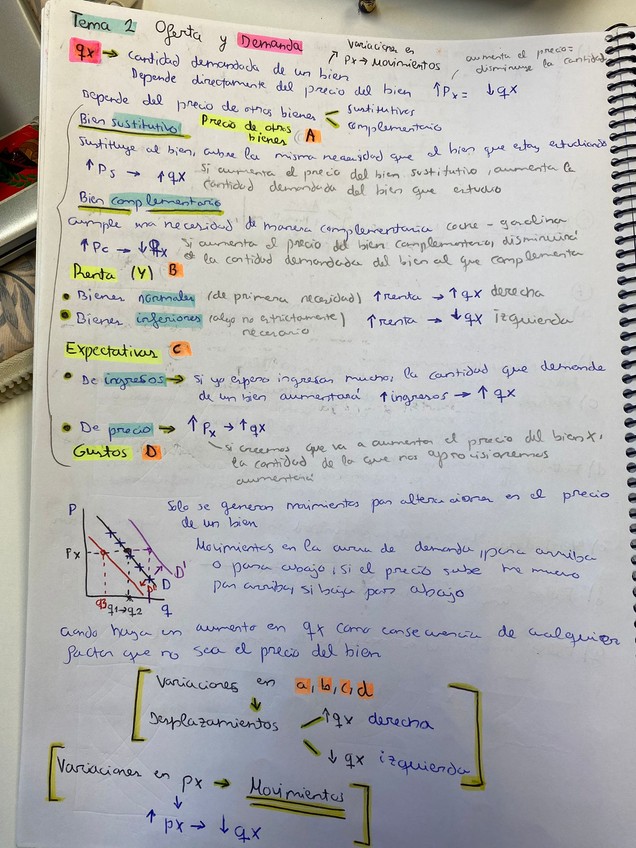 Tema 2 Oferta y Demanda
Variaciones en
↗ Px → Movimientos
aumenta el precio =
disminuye la cantidad
qx → cantidad demandada de un bien
Depende directamente del precio del bien ↑Px = ↓qx
Depende del precio de otros bienes
sustitutivos
complementario
Bien sustitutivo
Precio de otros
bienes A
Sustituye al bien, cubre la misma necesidad que el bien que estoy estudiando
↑Ps → ↑qx
Si aumenta el precio del bien sustitutivo, aumenta la
cantidad demandada del bien que estudio
Bien complementario
cumple una necesidad de manera complementaria coche - gasolina
↑Pc → ↓qx
Si aumenta el precio del bien complementario, disminuirá
la cantidad demandada del bien al que complementa
Renta (Y) B
• Bienes normales (de primera necesidad) ↑renta → ↑qx derecha
• Bienes inferiores (algo no estrictamente) ↑renta → ↓qx izquierda
necesario
Expectativas C
• De ingresos → si yo espero ingresar mucho, la cantidad que demande
de un bien aumentará ↑ingresos → ↑qx
• De precio → ↑Px → ↑qx
si creemos que va a aumentar el precio del bien X,
la cantidad de la que nos aprovisionaremos
aumentará
Gustos D
Solo se generan movimientos por alteraciones en el precio
de un bien
P
Px
D'
D
q3 q1→q2 q
Movimientos en la curva de demanda, para arriba
o para abajo, si el precio sube me muevo
por arriba, si baja por abajo
cuando haya un aumento en qx como consecuencia de cualquier
factor que no sea el precio del bien
Variaciones en a, b, c, d
↓
Desplazamientos
↑qx derecha
↓qx izquierda
Variaciones en px → Movimientos
↓
↑px → ↓qx